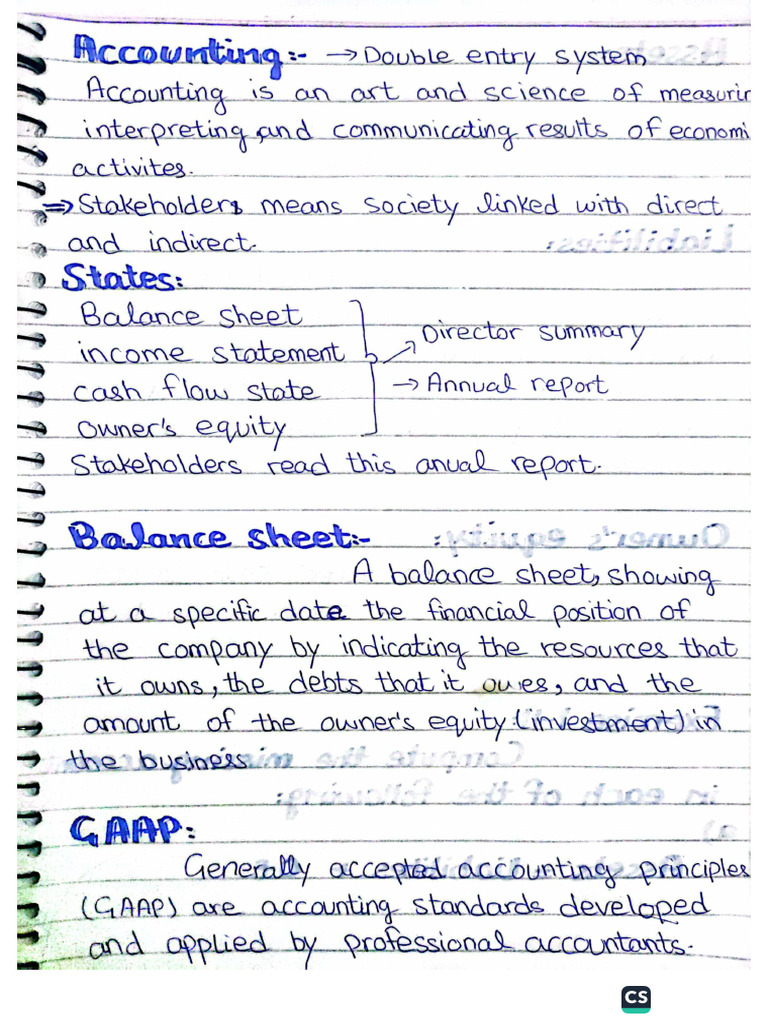 Accounting:- → Double entry system
Accounting is an art and science of measurin
interpreting, and communicating results of economi
activites.
⇒ Stakeholders means society linked with direct
and indirect.
States:
Balance sheet
income statement
cash flow state
owner's equity
→ Director summary
→ Annual report
Stakeholders read this anual report.
Balance sheet:-
A balance sheet, showing
at a specific date the financial position of
the company by indicating the resources that
it owns, the debts that it owes, and the
amount of the owner's equity (investment) in
the business
GAAP:
Generally accepted accounting principles
(GAAP) are accounting standards developed
and applied by professional accountants.
CS